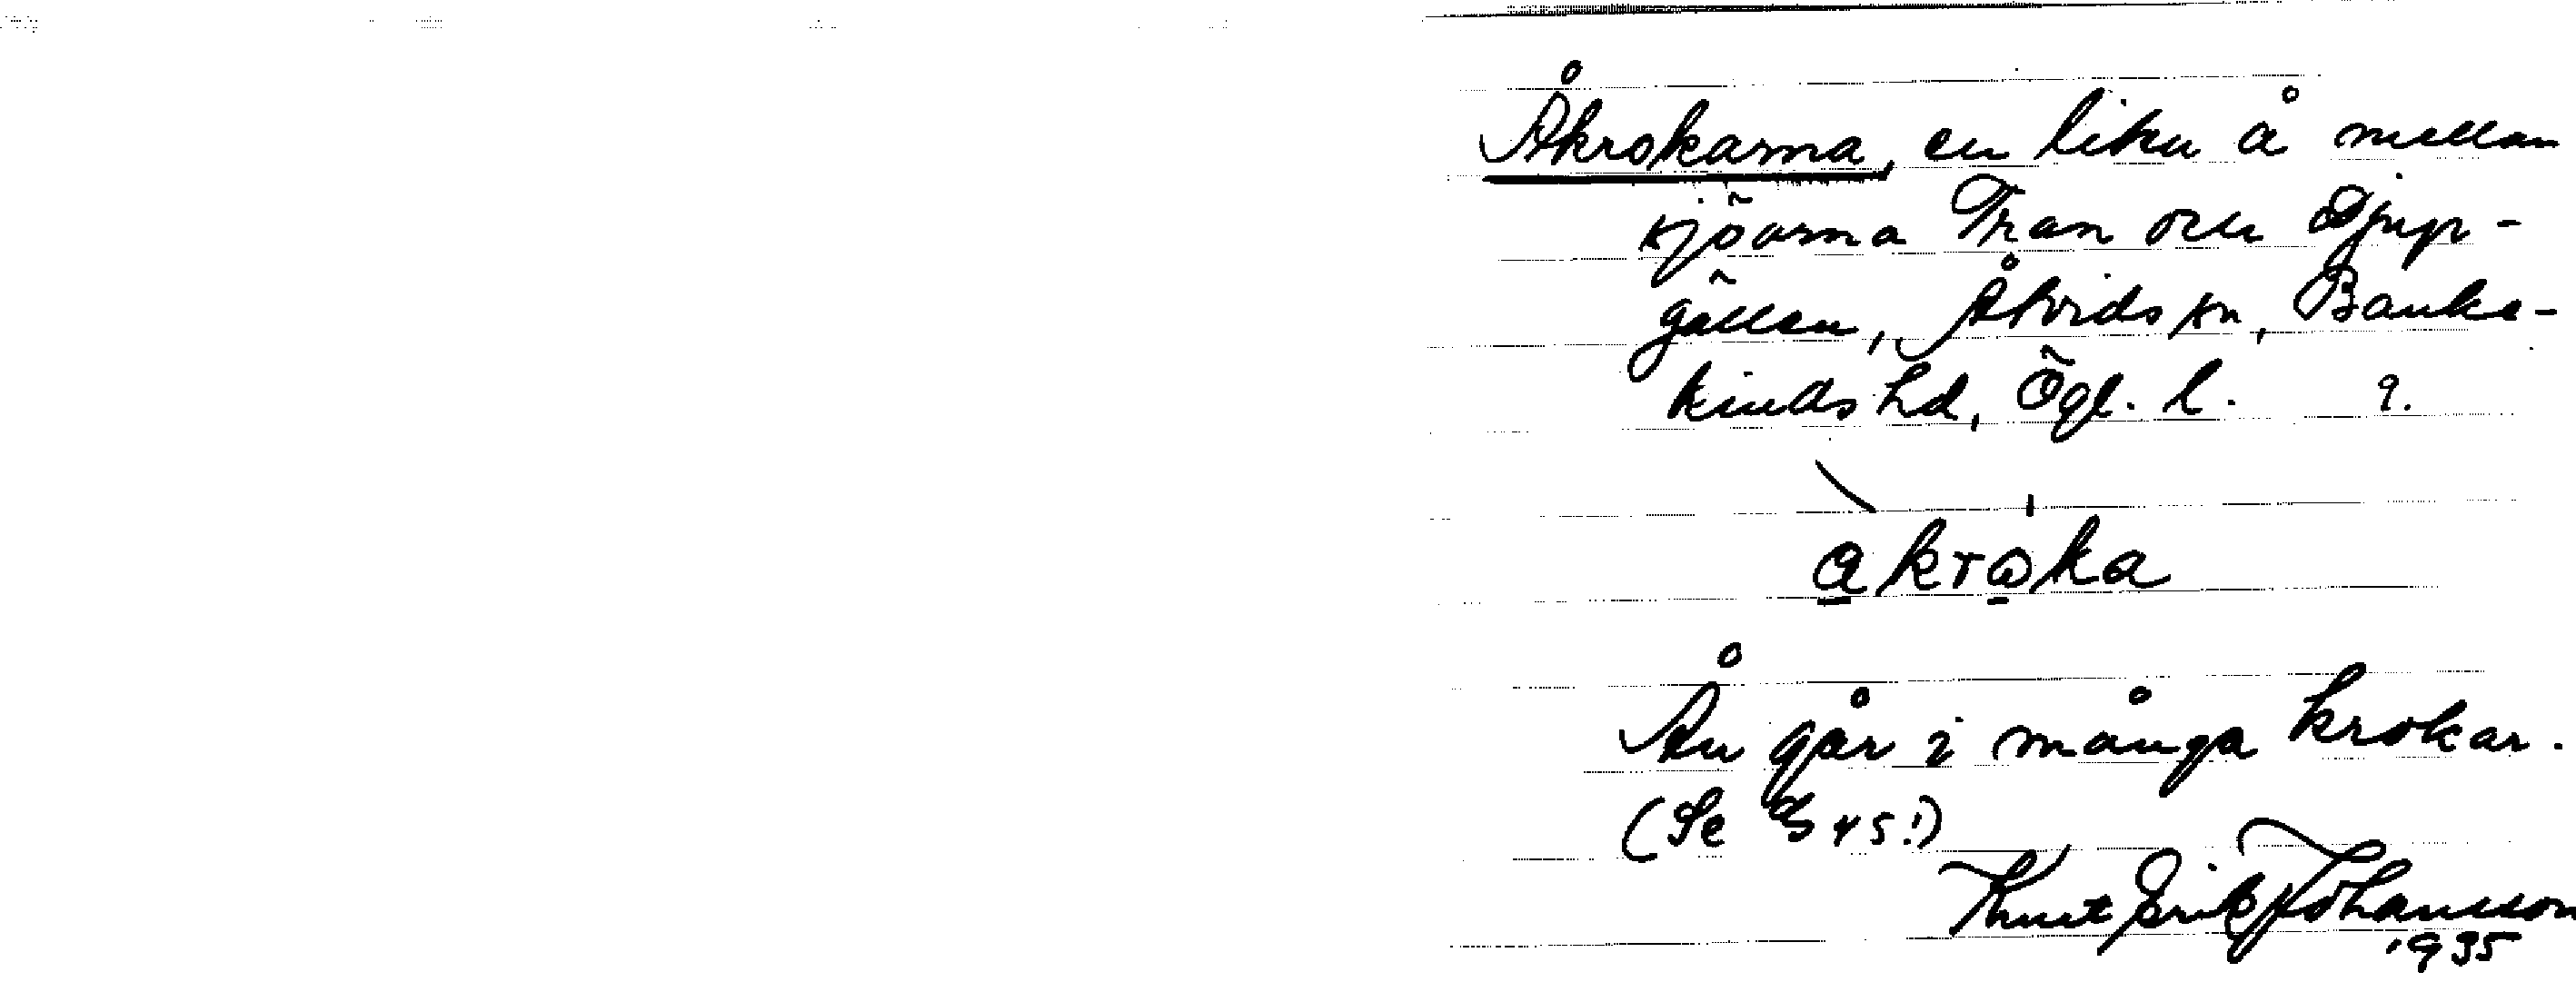 Åkrokarna, en liten å mellan
sjöarna Tran och Djup-
gällen, Åtvids sn, Banke-
kinds hd, Ögl. l. 9.
akråka
Ån går i många krokar.
(Se 45!)
Knut Erik Johansson
1935